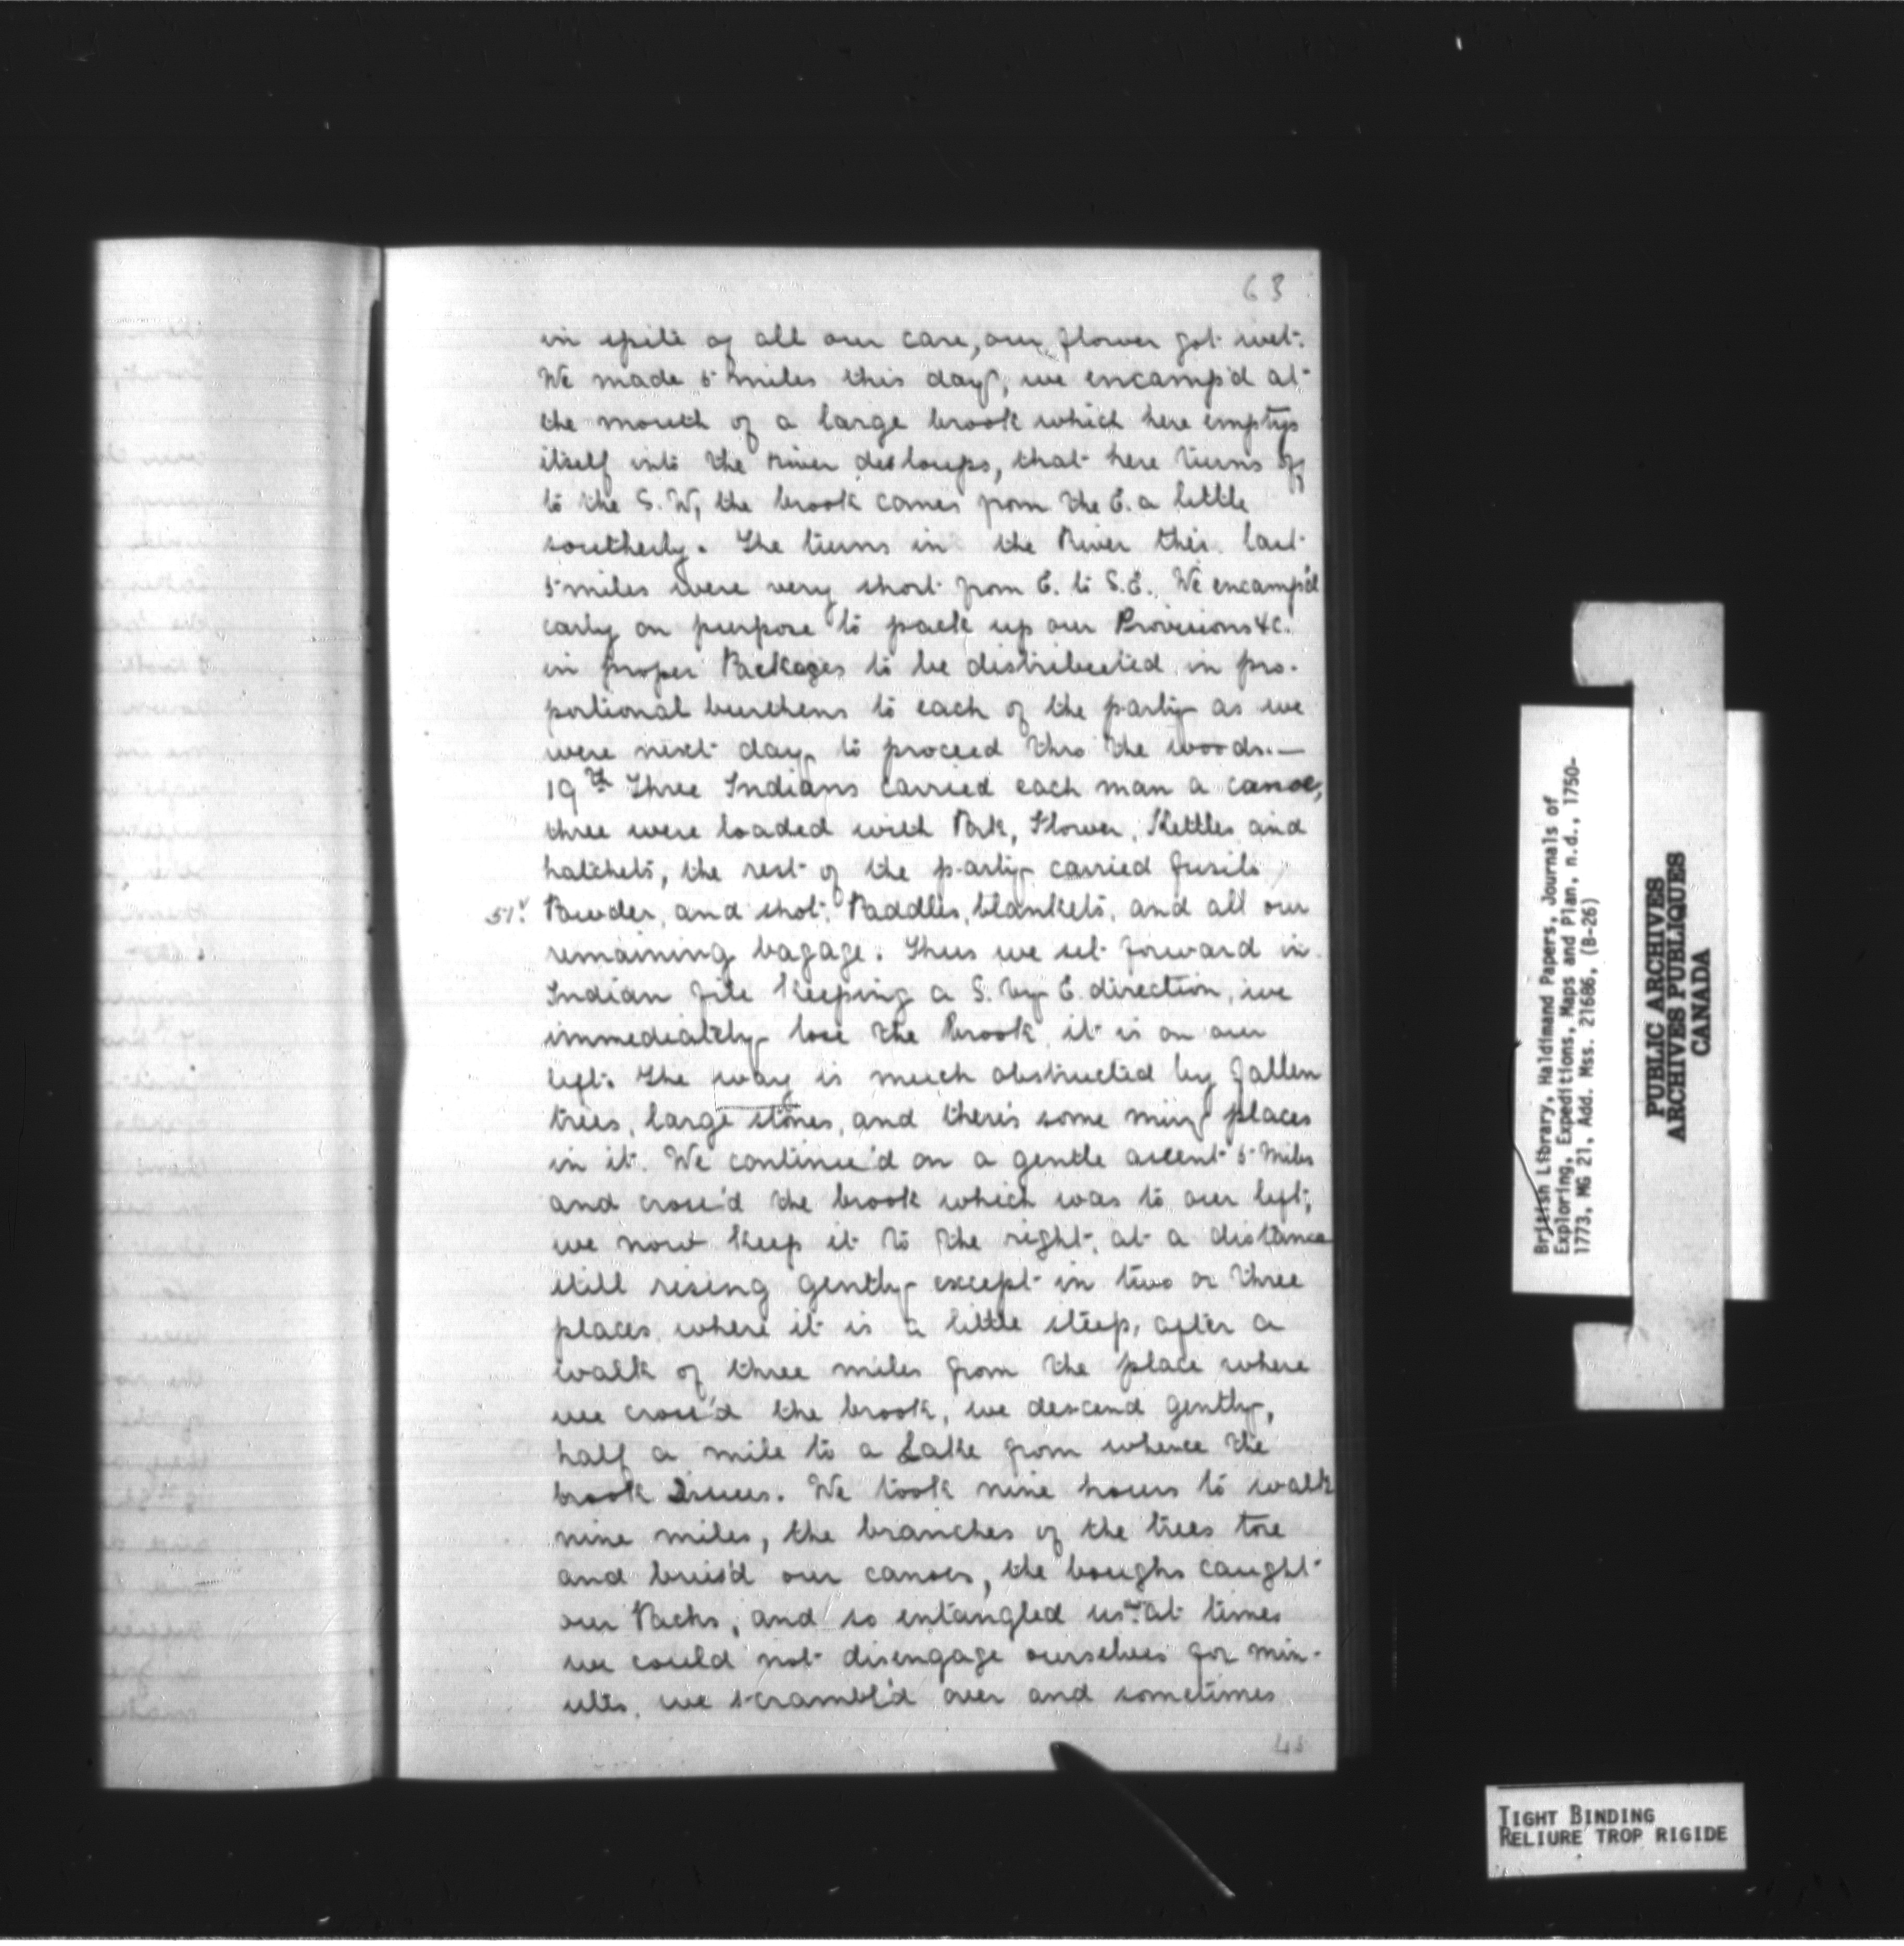 63
in spite of all our care, our flower got wet.
We made 5 miles this day, we encamp'd at
the mouth of a large brook which here emptys
itself into the River desloups, that here turns off
to the S. W, the brook comes from the E. a little
southerly. The turns in the River this last
5 miles were very short from E. to S.E. We encamp'd
early on purpose to pack up our Provisions &c.
in proper Packages to be distributed in pro-
portional burthens to each of the party as we
were next day to proceed thro the woods.—
19th Three Indians carried each man a canoe,
three were loaded with Pork, Flower, Kettles and
hatchets, the rest of the party carried fusils
51v. Powder, and shot, Paddles, blankets, and all our
remaining bagage. Thus we set forward in
Indian file keeping a S. by E. direction, we
immediately lose the Brook it is on our
left. The way is much obstructed by fallen
trees, large stones, and there's some miry places
in it. We continue'd on a gentle ascent 5 Miles
and cross'd the brook which was to our left,
we now keep it to the right, at a distance
still rising gently except in two or three
places where it is a little steep, after a
walk of three miles from the place where
we cross'd the brook, we descend gently,
half a mile to a Lake from whence the
brook Issues. We took nine hours to walk
nine miles, the branches of the trees tore
and bruis'd our canoes, the boughs caught
our Packs, and so entangled us at times
we could not disengage ourselves for min-
utes, we scrambl'd over and sometimes
British Library, Haldimand Papers, Journals of
Exploring, Expeditions, Maps and Plan, n.d., 1750-
1773, MG 21, Add. Mss. 21686, (B-26)
PUBLIC ARCHIVES
ARCHIVES PUBLIQUES
CANADA
TIGHT BINDING
RELIURE TROP RIGIDE